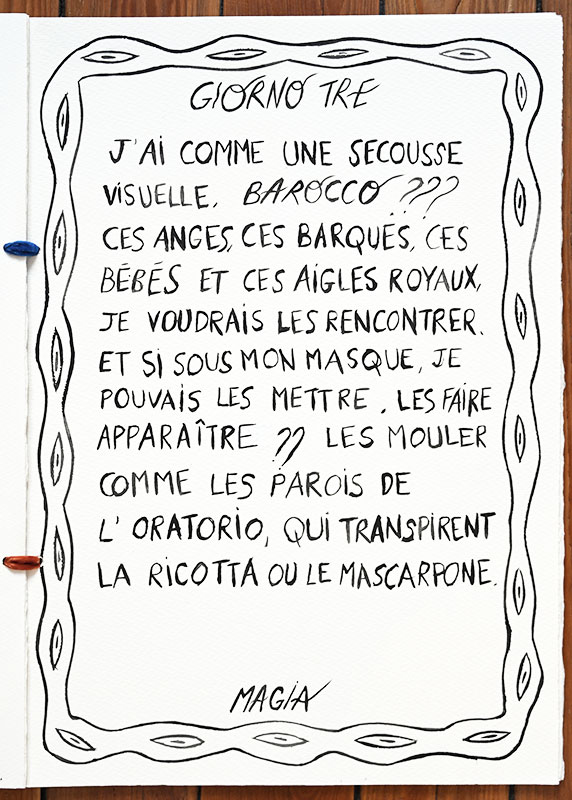 GIORNO TRE
J'AI COMME UNE SECOUSSE
VISUELLE. BAROCCO ???
CES ANGES, CES BARQUES, CES
BÉBÉS ET CES AIGLES ROYAUX,
JE VOUDRAIS LES RENCONTRER.
ET SI SOUS MON MASQUE, JE
POUVAIS LES METTRE. LES FAIRE
APPARAÎTRE ?? LES MOULER
COMME LES PAROIS DE
L'ORATORIO, QUI TRANSPIRENT
LA RICOTTA OU LE MASCARPONE.
MAGIA